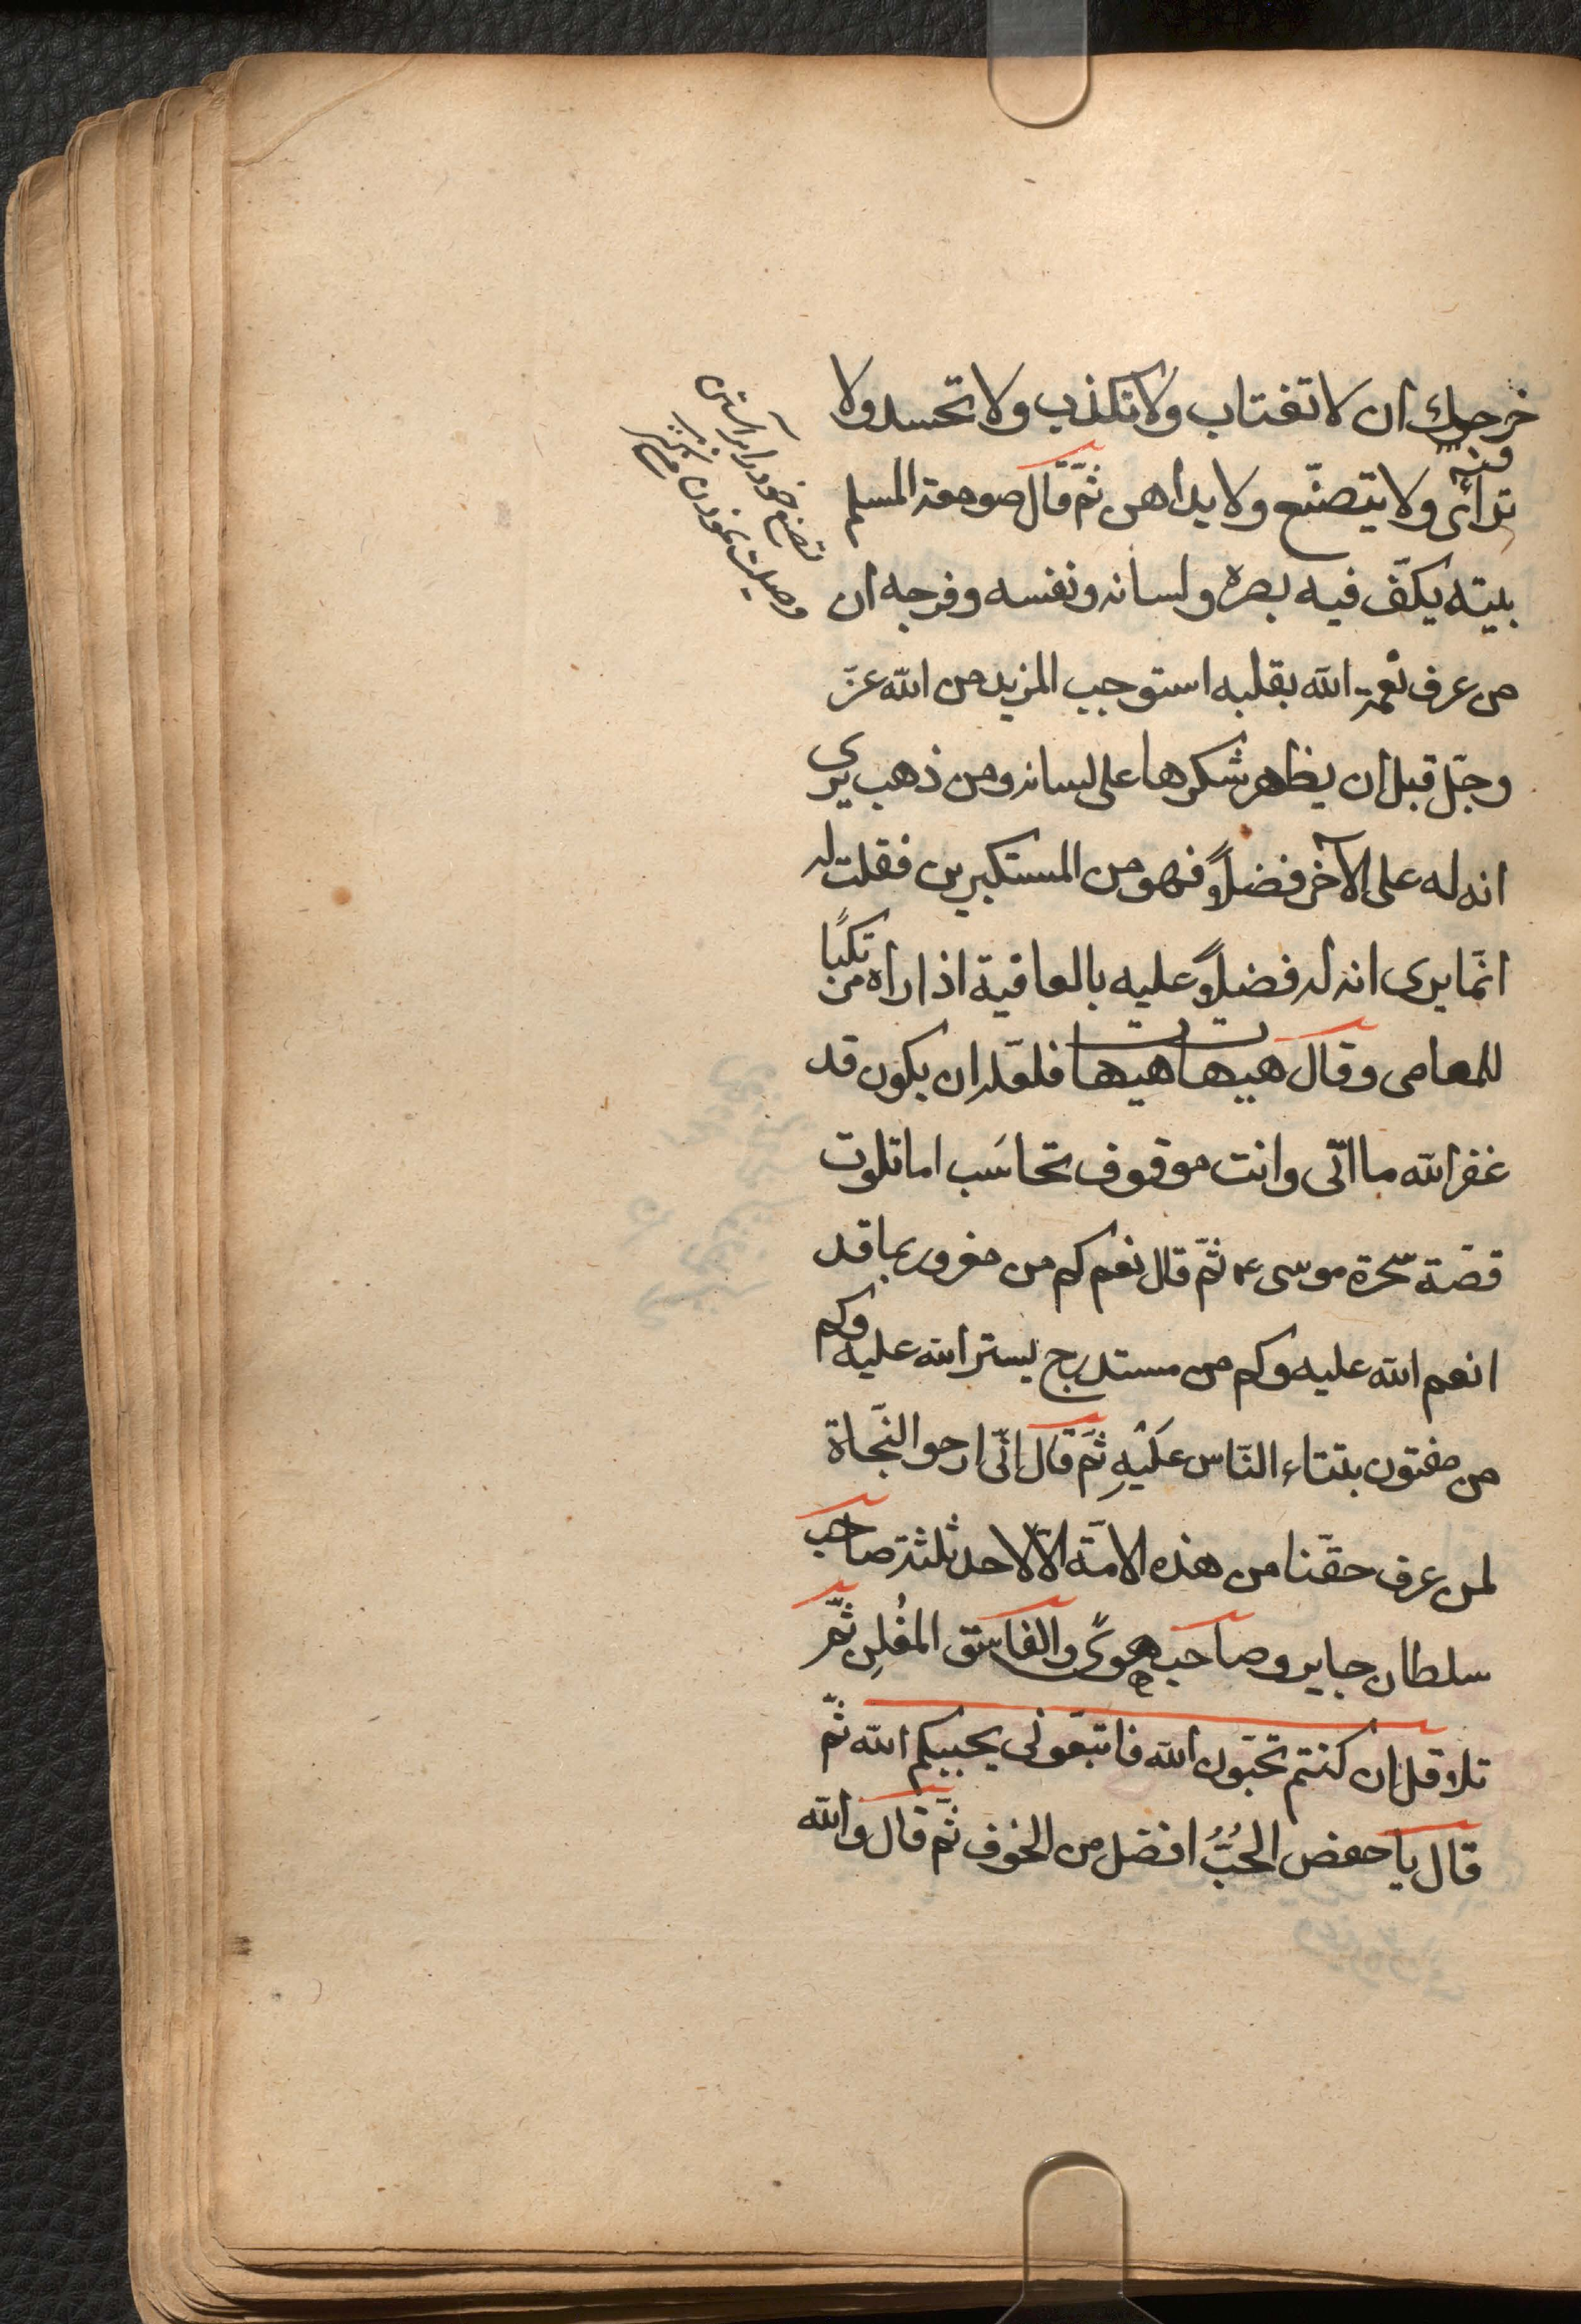 خرجك ان لا تغتاب ولا تكذب ولا تحسد ولا
ترائى ولا يتصنّع ولا يداهن ثمّ قال صومعة المسلم
بيته يكفّ فيه بصره ولسانه ونفسه وفرجه ان
من عرف نعمة الله بقلبه استوجب المزيد من الله عزّ
وجلّ قبل ان يظهر شكرها على لسانه ومن ذهب يرى
انه له على الآخر فضلاً فهو من المستكبرين فقلت له
انّما يرى انه له فضلاً عليه بالعافية اذا راه مرتكبًا
للمعاصى وقال هيهات هيهات فلعّله ان يكون قد
غفر الله ما اتى وانت موقوف تحاسَب اما تلوت
قصّة سحرة موسى ع ثمّ قال نعم كم من مغرور بما قد
انعم الله عليه وكم من مستدرج يستر الله عليه وكم
من مفتون بثناء النّاس عَلَيْهِ ثمّ قال انّى ارجو النّجاة
لمن عرف حقّنا من هذه الامّة الاّ لاحد ثلثة صاحب
سلطان جاير وصاحب هوىً والفاسق المعُلِن ثمّ
تلا قل ان كنتم تحبّون الله فاتبعونى يحببكم الله ثمّ
قال يا حفص الحُبُّ افضل من الخوف ثمّ قال والله
تصنع خود را برآراستن